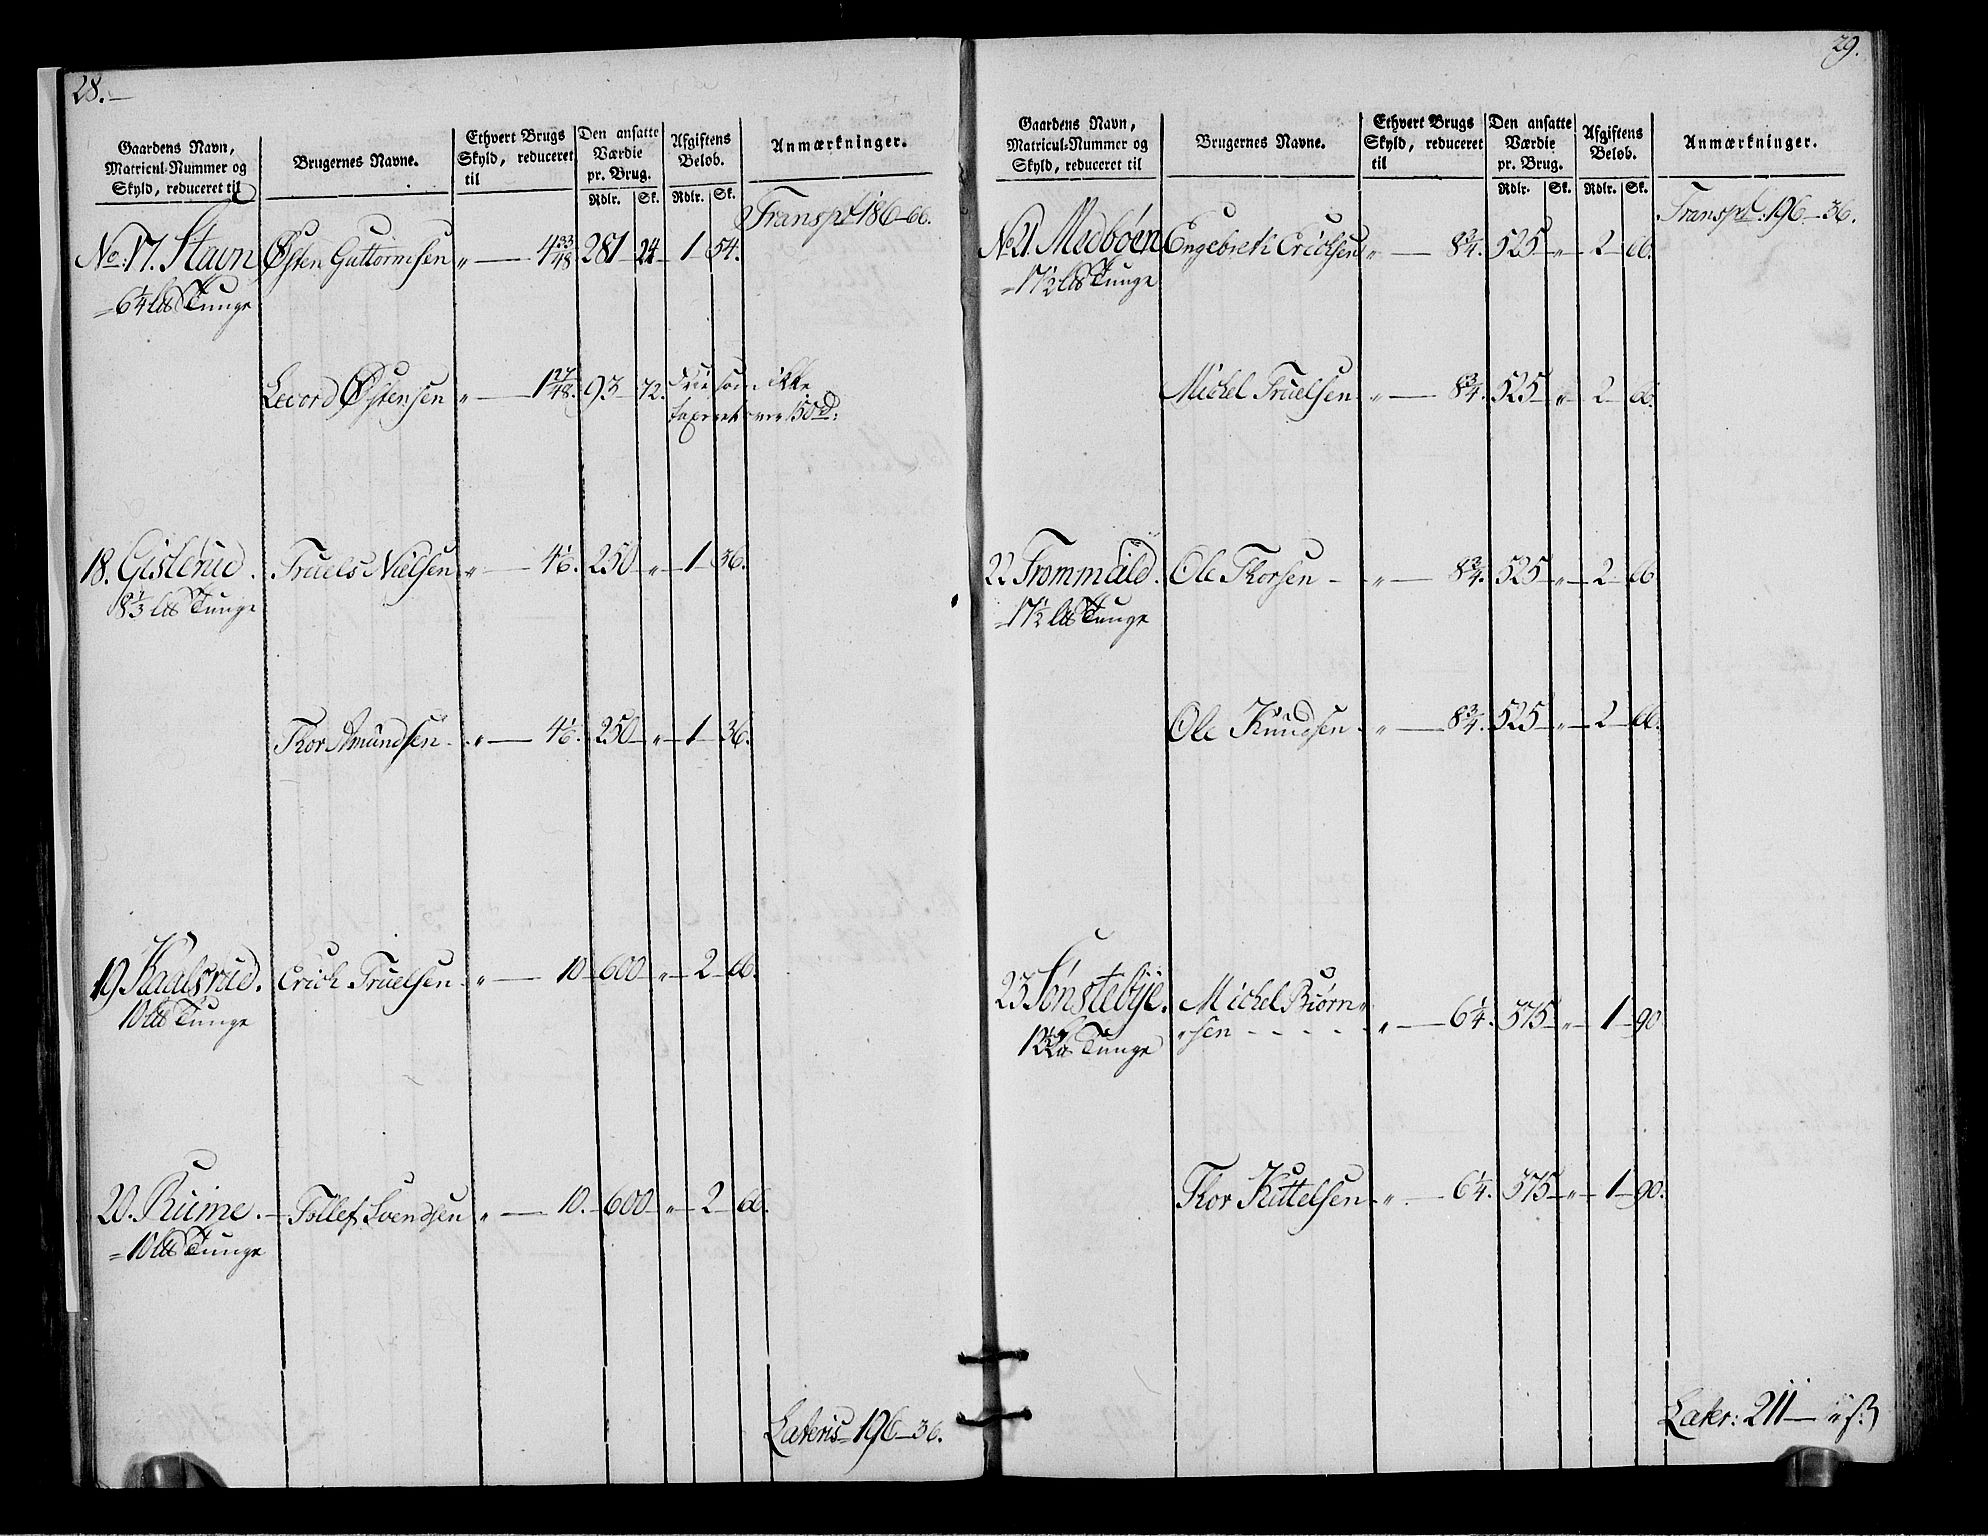 28.
Gaardens Navn, Matricul-Nummer og Skyld, reduceret til
Brugernes Navne.
Ethvert Brugs Skyld, reduceret til
Den ansatte Værdie pr. Brug.
Afgiftens Beløb.
Anmærkninger.
Rdlr. Sk. Rdlr. Sk.
Transpt 186 - 66.
No. 17. Stavn Østen Guttormsen „ — 4 33/48 281 24 1 54.
= 6 1/4 lb Tunge
Levord Østensen „ — 1 27/48. 93 72. frie som ikke
taxeret over 150 d:
18. Gislerud. Truels Nielsen „ — 4 1/6. 250 „ 1 36.
8 1/3 lb Tunge
Thor Amundsen „ — 4 1/6. 250 „ 1 36.
19 Kaalsrud. Erich Truelsen „ — 10 600 „ 2 66.
10 lb Tunge
20. Ruime. Tollef Svendsen „ — 10. 600 „ 2 66.
= 10 lb Tunge
Lateris 196 - 36.
29.
Gaardens Navn, Matricul-Nummer og Skyld, reduceret til
Brugernes Navne.
Ethvert Brugs Skyld, reduceret til
Den ansatte Værdie pr. Brug.
Afgiftens Beløb.
Anmærkninger.
Rdlr. Sk. Rdlr. Sk.
Transpt: 196 - 36.
No 21. Medbøen Engebreth Erichsen „ — 8 3/4. 525 „ 2 66.
= 17 1/2 lb Tunge
Michel Truelsen „ — 8 3/4. 525 „ 2 66.
22 Trommald. Ole Thorsen - „ — 8 3/4. 525 „ 2 66
= 17 1/2 lb Tunge
Ole Knudsen „ — 8 3/4. 525 „ 2 66.
23 Sønstebye. Michel Biørn
sen - - - - „ — 6 1/4. 375 „ 1 90
Tunge
Thor Kittelsen „ — 6 1/4. 375 „ 1 90.
Later: 211 — „ ß